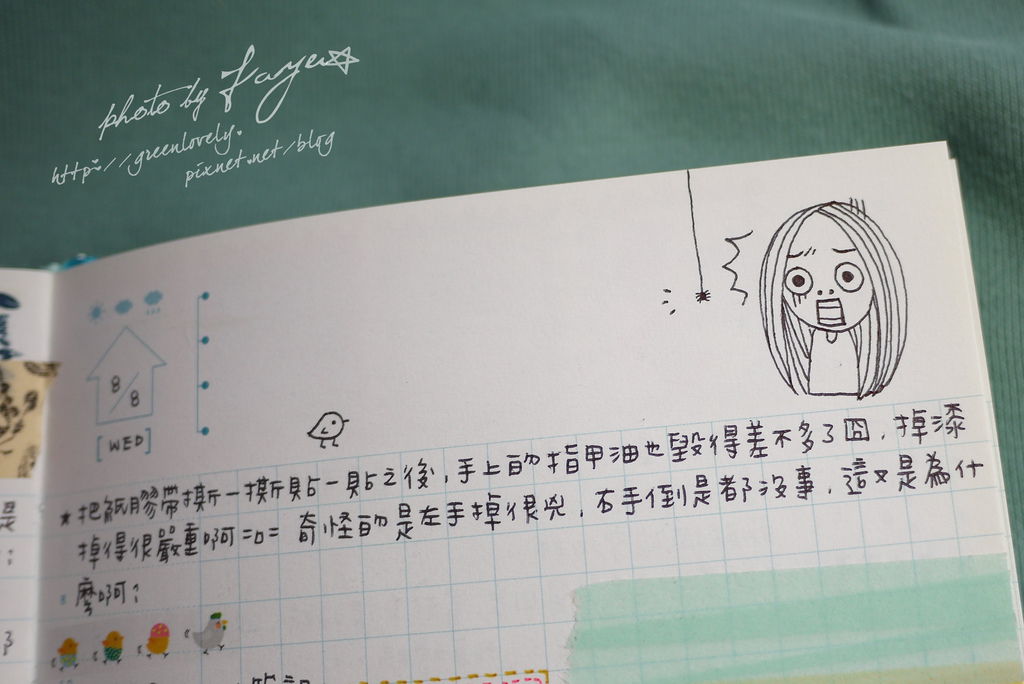 photo by Faye
http://greenlovely.
pixnet.net/blog
8/8
[WED]
★把紙膠帶撕一撕貼一貼之後,手上的指甲油也毀得差不多了囧,掉漆
掉得很嚴重啊=口= 奇怪的是左手掉很兇,右手倒是都沒事,這又是為什
麼啊?
是